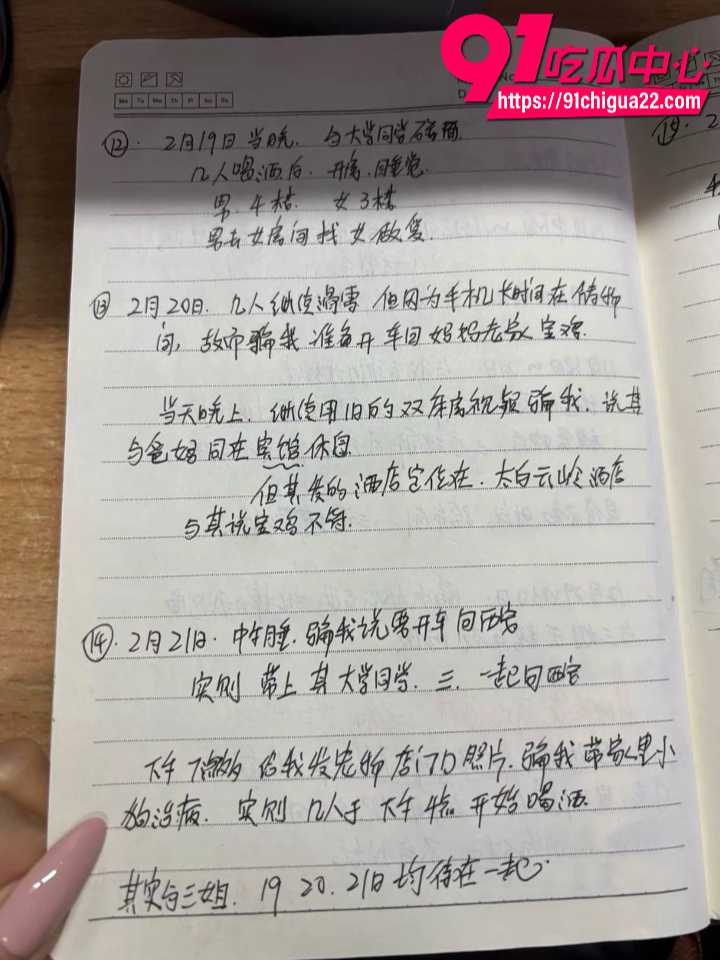 91吃瓜中心
https://91chigua22.com
Mo Tu We Th Fr Sa Su
⑫. 2月19日 当晚. 与大学同学碰面.
几人喝酒后. 开房. 睡觉.
男. 4楼. 女3楼
男去女房间找女做爱.
⑬ 2月20日. 几人继续滑雪 但因为手机长时间在储物
间, 故而骗我 准备开车回妈妈老家 宝鸡.
当天晚上. 继续使用旧的双床房视频骗我. 说其
与爸妈同在宾馆休息
但其发的酒店定位在. 太白云岭酒店
与其说宝鸡不符.
⑭. 2月21日. 中午睡. 骗我说要开车回西安
实则 带上其大学同学. 三. 一起回西安
下午 给我发宠物店门口照片. 骗我 带家里小
狗治病. 实则 几人于下午4点 开始喝酒.
其实与三姐. 19 20. 21日 均待在一起